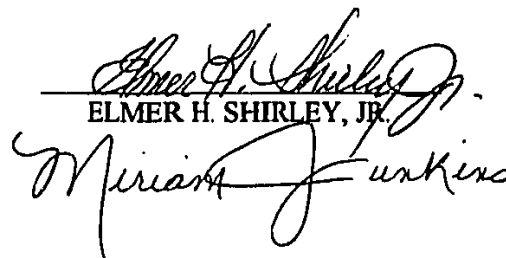 Elmer H. Shirley Jr.
ELMER H. SHIRLEY, JR.
Miriam Junkins